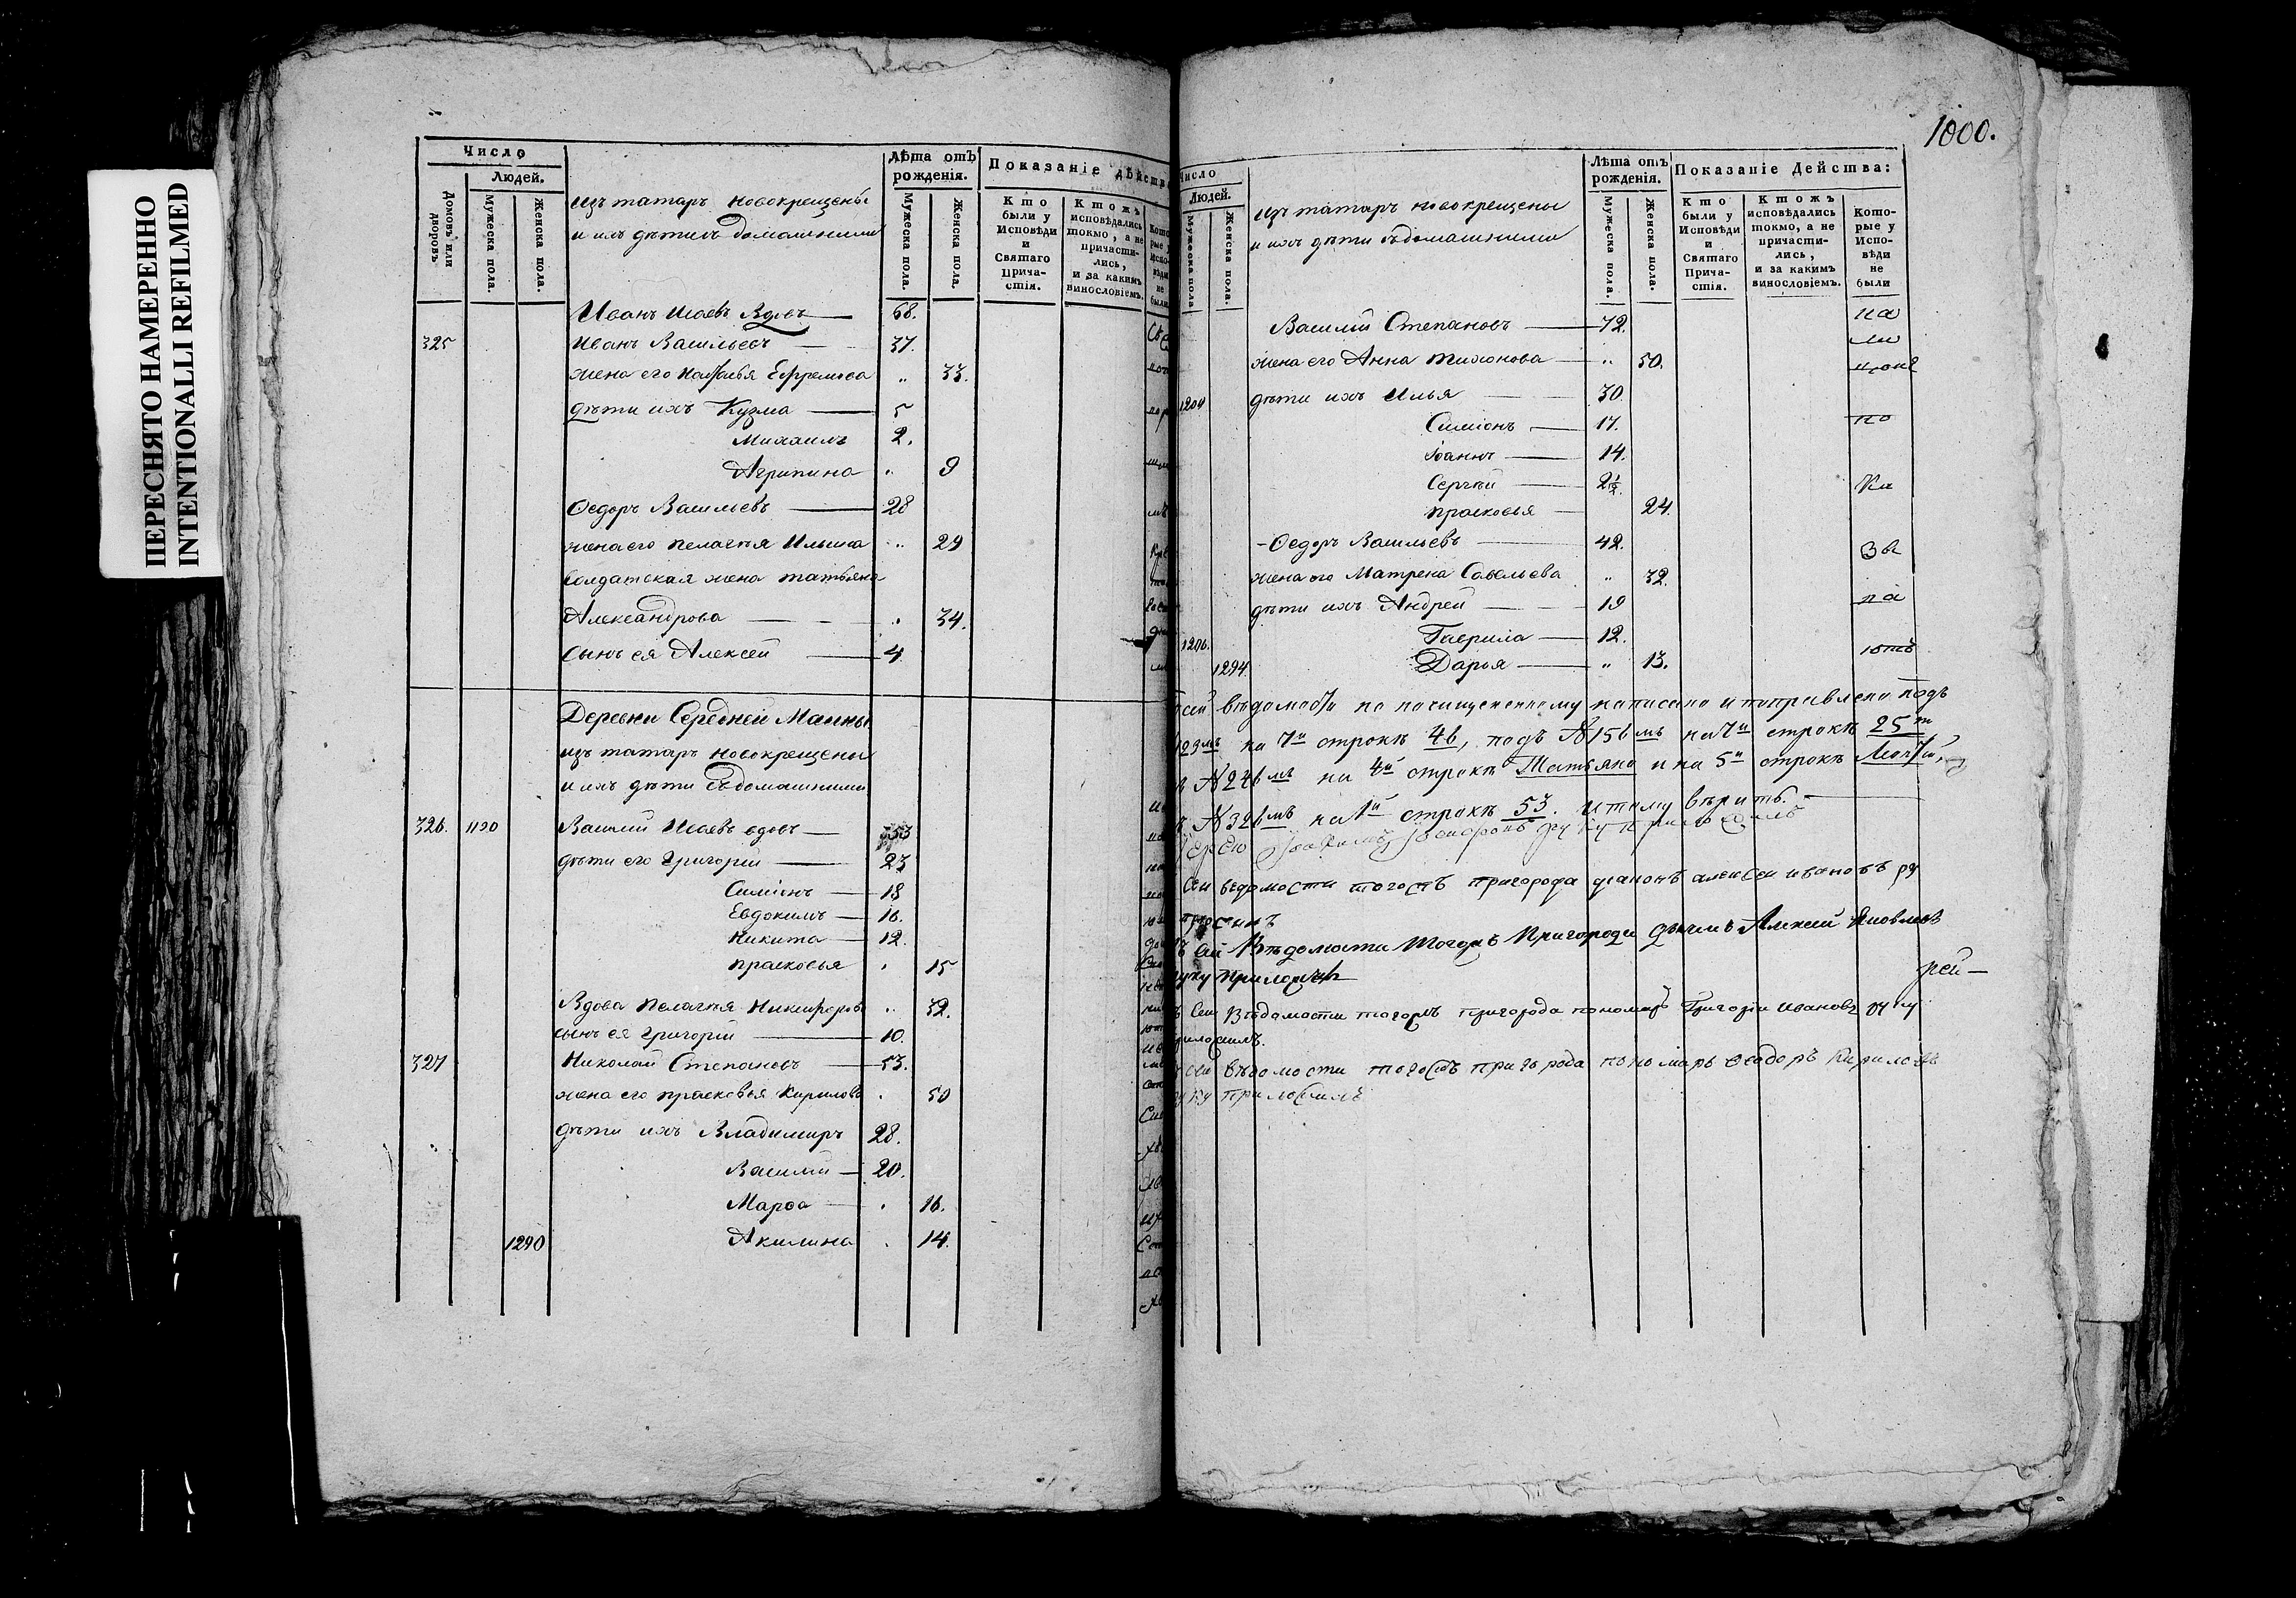 ПЕРЕСНЯТО НАМЕРЕННО
INTENTIONALLI REFILMED
Число
Людей.
Домовъ или дворовъ.
Мужеска пола.
Женска пола.
изъ татаръ новокрещены
и ихъ дѣти съ домашними
Лѣта отъ рожденія.
Мужеска пола.
Женска пола.
Показаніе дѣйства
Кто были у Исповѣди и Святаго Прича- стія.
Ктожъ исповѣдались токмо, а не причасти- лись, и за какимъ винословіемъ.
Иванъ Исаевъ Вдовъ 68.
325 Иванъ Васильевъ 37.
жена его Наталья Ефремова „ 33.
дѣти ихъ Кузма 5
Михаилъ 2.
Агрипина „ 9
Ѳедоръ Васильевъ 28
жена его Пелагея Ильина „ 29
Солдатская жена Татьяна
Александрова „ 34.
Сынъ ея Алексей 4
Деревни Средней Маины
изъ татаръ новокрещены
и ихъ дѣти съ домашними
326. 1190 Василий Исаевъ вдовъ 53
дѣти его Григорий 23
Симионъ 18
Евдокимъ 16.
Никита 12.
Прасковья „ 15
Вдова Пелагея Никифорова „ 32.
сынъ ея Григорий 10.
327 Николай Степановъ 53.
жена его Прасковья Кирилова „ 50
дѣти ихъ Владимиръ 28.
Василий 20.
Марѳа „ 16.
1290 Акилина „ 14.
1000.
Число
Людей.
Мужеска пола
Женска пола.
изъ татаръ новокрещены
и ихъ дѣти съ домашними
Лѣта отъ рожденія.
Мужеска пола.
Женска пола.
Показаніе Действа:
Кто были у Исповѣди и Святаго Прича- стія.
Ктожъ исповѣдались токмо, а не причасти- лись, и за какимъ винословіемъ.
Кото- рые у Испо- вѣди не были
Василий Степановъ 72.
жена его Анна Тихонова „ 50.
1204 дѣти ихъ Илья 30.
Симионъ 17.
Иоаннъ 14.
Сергей 2½.
Прасковья 24.
Ѳедоръ Васильевъ 42.
жена его Матрена Савельева „ 32.
дѣти ихъ Андрей 19
1206. Гаврила 12.
1294. Дарья „ 13.
сей вѣдомости по почищенному написано и поправлено подъ
на 7й строкѣ 46, подъ №156мъ на 7й строкѣ 25
№226мъ на 4й строкѣ Татьяна и на 5й строкѣ
№326мъ на 1й строкѣ 53. и тому вѣрить.
руку приложилъ
Сей ведомости тогожъ пригорода диаконъ алексеи ивановъ ру
Сей Вѣдомости Тогожъ Пригорода Дьячекъ Алексей Яковлевъ
руку приложилъ
Сей Вѣдомости тогожъ пригорода пономарь Григорий Ивановъ руку
приложилъ.
сеи вѣдомости тогожъ пригорода пономарь Ѳеодоръ Кириловъ
руку приложилъ